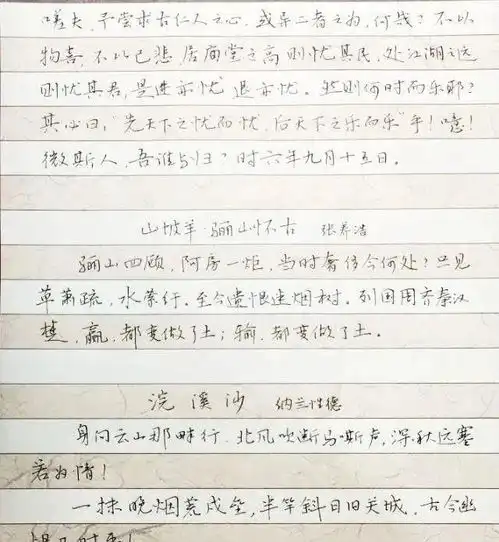 嗟夫,予尝求古仁人之心,或异二者之为,何哉?不以
物喜,不以己悲,居庙堂之高则忧其民,处江湖之远
则忧其君,是进亦忧,退亦忧。然则何时而乐耶?
其必曰,“先天下之忧而忧,后天下之乐而乐”乎!噫!
微斯人,吾谁与归?时六年九月十五日。
山坡羊·骊山怀古 张养浩
骊山四顾,阿房一炬,当时奢侈今何处?只见
草萧疏,水萦纡。至今遗恨迷烟树。列国周齐秦汉
楚,赢,都变做了土;输,都变做了土。
浣溪沙 纳兰性德
身向云山那畔行,北风吹断马嘶声,深秋远塞
若为情!
一抹晚烟荒戍垒,半竿斜日旧关城,古今幽
恨几时平!